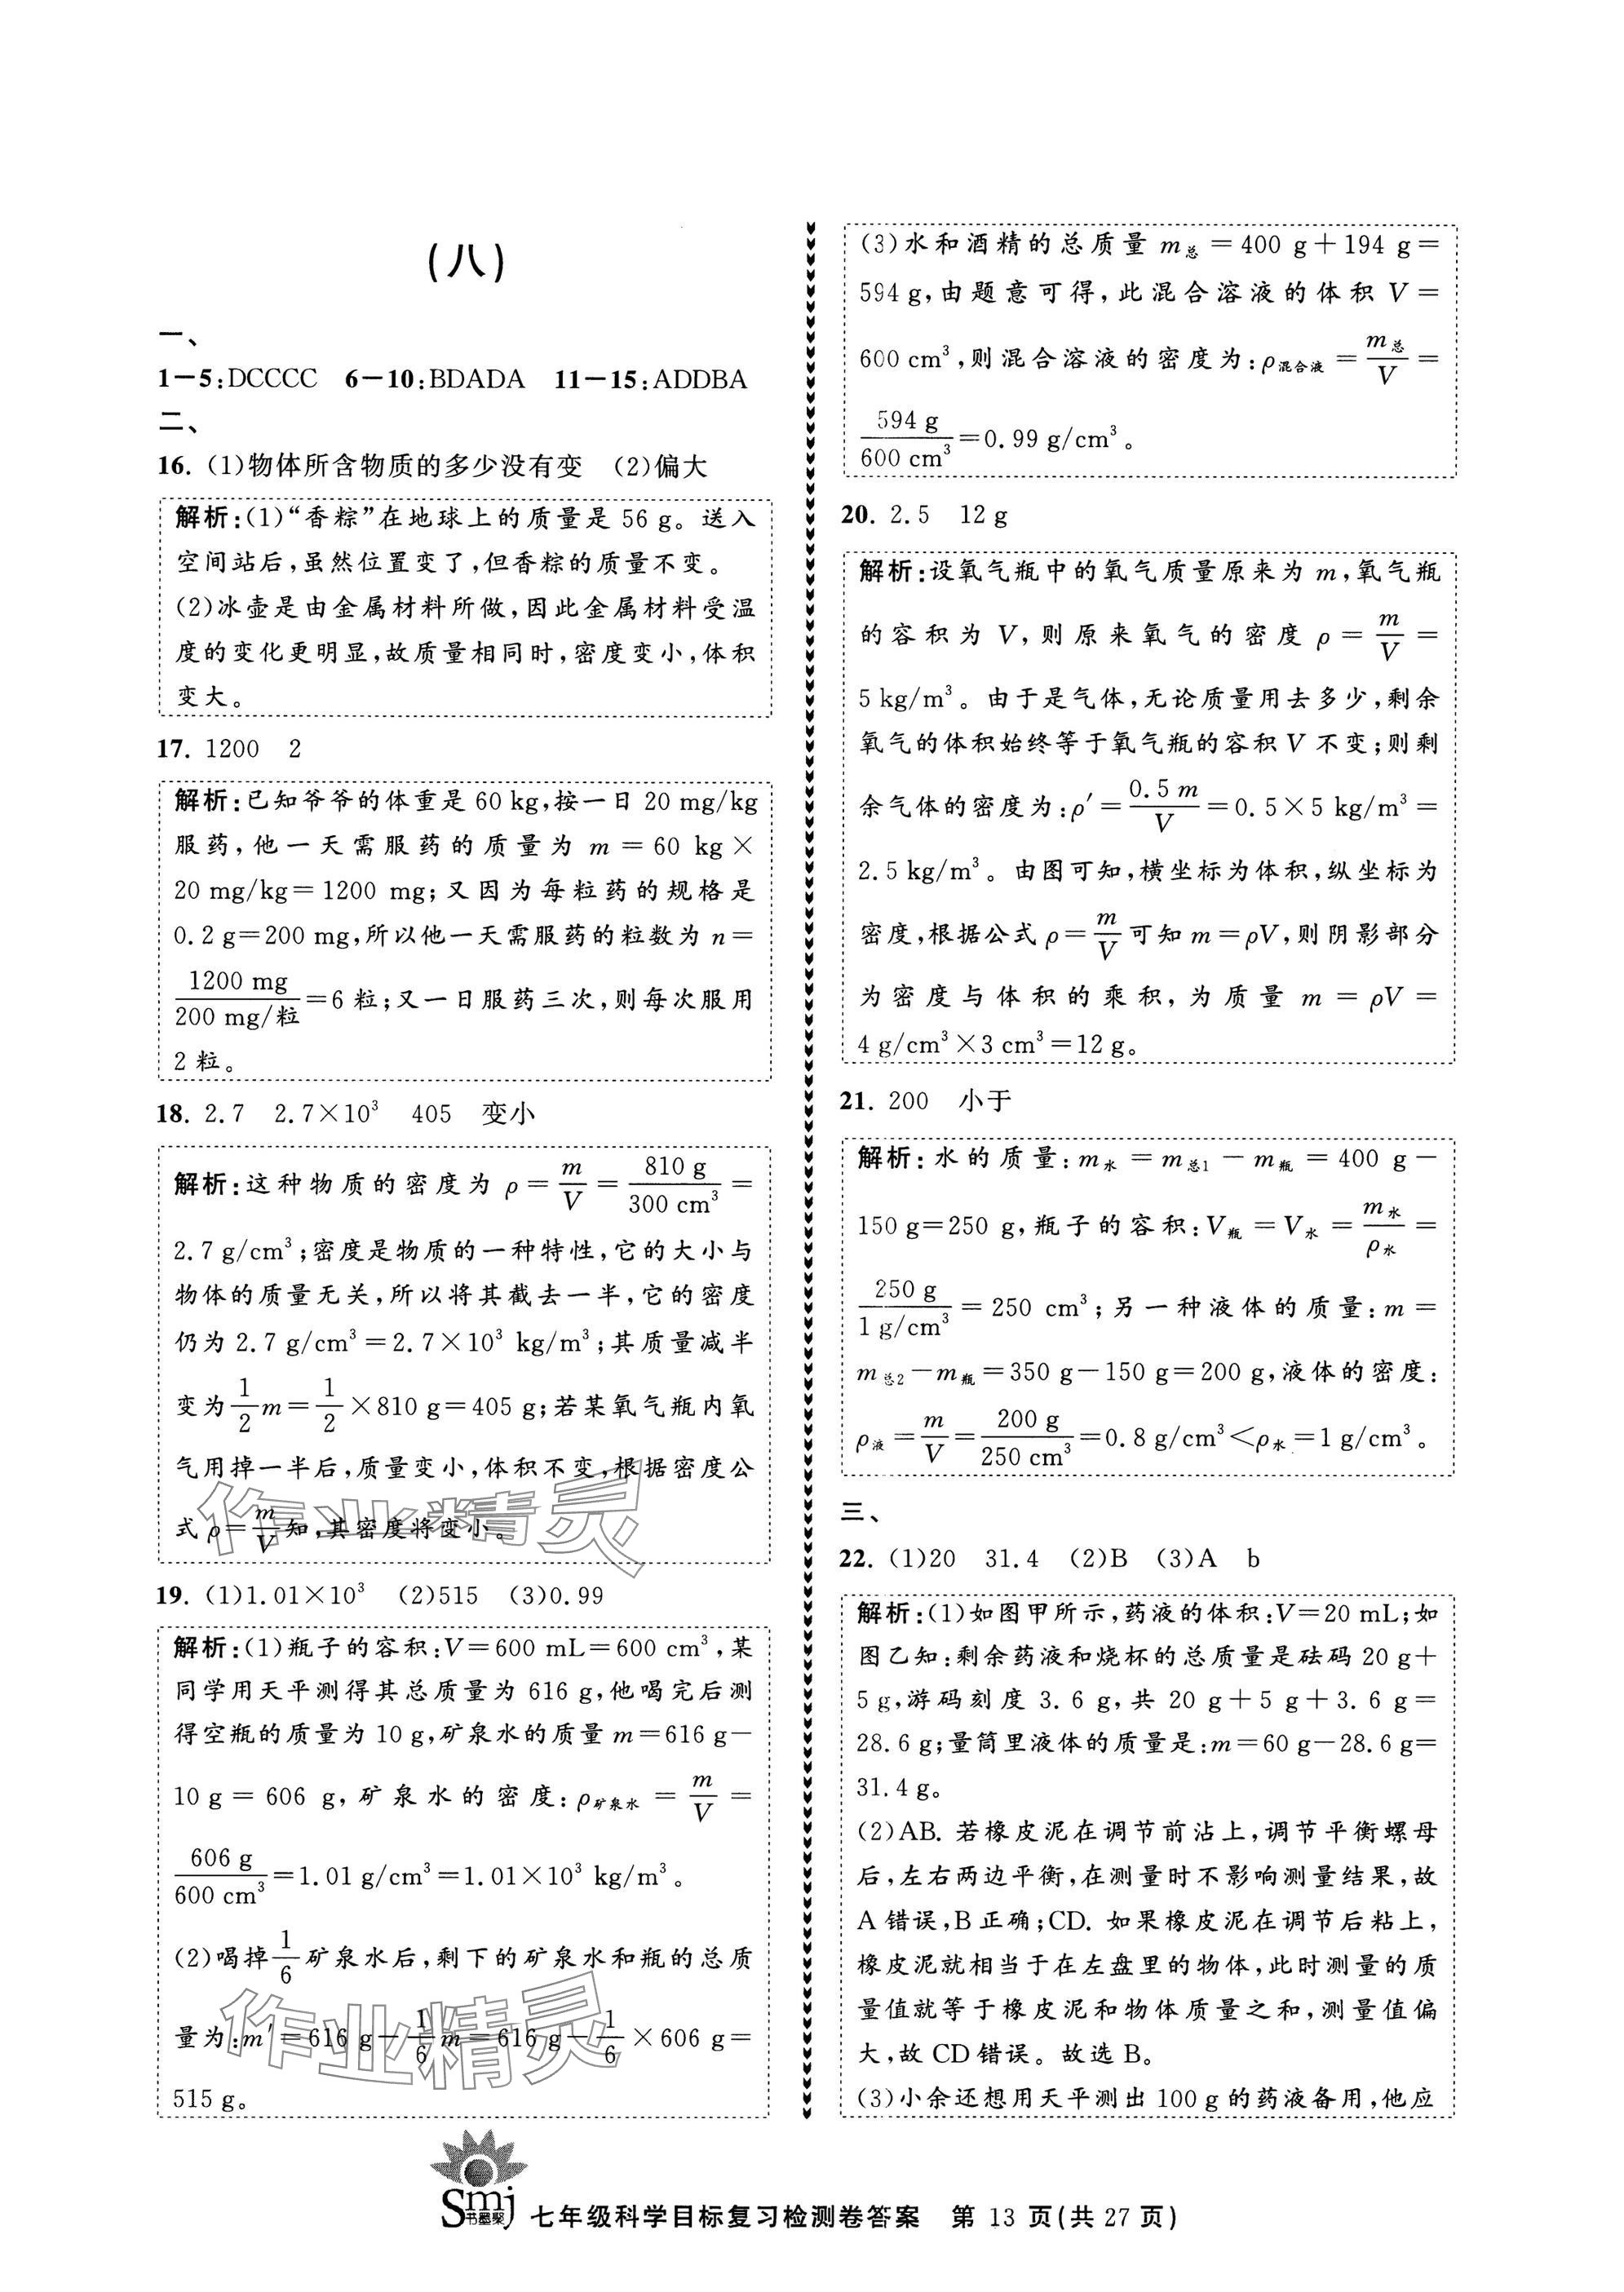 (八)
一、
1－5:DCCCC 6－10:BDADA 11－15:ADDBA
二、
16. (1)物体所含物质的多少没有变 (2)偏大
解析:(1)“香粽”在地球上的质量是 56 g。送入
空间站后,虽然位置变了,但香粽的质量不变。
(2)冰壶是由金属材料所做,因此金属材料受温
度的变化更明显,故质量相同时,密度变小,体积
变大。
17. 1200 2
解析:已知爷爷的体重是 60 kg,按一日 20 mg/kg
服药,他一天需服药的质量为 m＝60 kg×
20 mg/kg＝1200 mg;又因为每粒药的规格是
0.2 g＝200 mg,所以他一天需服药的粒数为 n＝
1200 mg/200 mg/粒＝6 粒;又一日服药三次,则每次服用
2 粒。
18. 2.7 2.7×10³ 405 变小
解析:这种物质的密度为 ρ＝m/V＝810 g/300 cm³＝
2.7 g/cm³;密度是物质的一种特性,它的大小与
物体的质量无关,所以将其截去一半,它的密度
仍为 2.7 g/cm³＝2.7×10³ kg/m³;其质量减半
变为1/2m＝1/2×810 g＝405 g;若某氧气瓶内氧
气用掉一半后,质量变小,体积不变,根据密度公
式 ρ＝m/V知,其密度将变小。
19. (1)1.01×10³ (2)515 (3)0.99
解析:(1)瓶子的容积:V＝600 mL＝600 cm³,某
同学用天平测得其总质量为 616 g,他喝完后测
得空瓶的质量为 10 g,矿泉水的质量 m＝616 g－
10 g＝606 g,矿泉水的密度:ρ矿泉水＝m/V＝
606 g/600 cm³＝1.01 g/cm³＝1.01×10³ kg/m³。
(2)喝掉1/6矿泉水后,剩下的矿泉水和瓶的总质
量为:m′＝616 g－1/6m＝616 g－1/6×606 g＝
515 g。
(3)水和酒精的总质量 m总＝400 g＋194 g＝
594 g,由题意可得,此混合溶液的体积 V＝
600 cm³,则混合溶液的密度为:ρ混合液＝m总/V＝
594 g/600 cm³＝0.99 g/cm³。
20. 2.5 12 g
解析:设氧气瓶中的氧气质量原来为 m,氧气瓶
的容积为 V,则原来氧气的密度 ρ＝m/V＝
5 kg/m³。由于是气体,无论质量用去多少,剩余
氧气的体积始终等于氧气瓶的容积 V 不变;则剩
余气体的密度为:ρ′＝0.5 m/V＝0.5×5 kg/m³＝
2.5 kg/m³。由图可知,横坐标为体积,纵坐标为
密度,根据公式 ρ＝m/V可知 m＝ρV,则阴影部分
为密度与体积的乘积,为质量 m＝ρV＝
4 g/cm³×3 cm³＝12 g。
21. 200 小于
解析:水的质量:m水＝m总1－m瓶＝400 g－
150 g＝250 g,瓶子的容积:V瓶＝V水＝m水/ρ水＝
250 g/1 g/cm³＝250 cm³;另一种液体的质量:m＝
m总2－m瓶＝350 g－150 g＝200 g,液体的密度:
ρ液＝m/V＝200 g/250 cm³＝0.8 g/cm³＜ρ水＝1 g/cm³。
三、
22. (1)20 31.4 (2)B (3)A b
解析:(1)如图甲所示,药液的体积:V＝20 mL;如
图乙知:剩余药液和烧杯的总质量是砝码 20 g＋
5 g,游码刻度 3.6 g,共 20 g＋5 g＋3.6 g＝
28.6 g;量筒里液体的质量是:m＝60 g－28.6 g＝
31.4 g。
(2)AB. 若橡皮泥在调节前沾上,调节平衡螺母
后,左右两边平衡,在测量时不影响测量结果,故
A 错误,B 正确;CD. 如果橡皮泥在调节后粘上,
橡皮泥就相当于在左盘里的物体,此时测量的质
量值就等于橡皮泥和物体质量之和,测量值偏
大,故 CD 错误。故选 B。
(3)小余还想用天平测出 100 g 的药液备用,他应
作业精灵
作业精灵
Smj
书墨聚
七年级科学目标复习检测卷答案 第 13 页(共 27 页)